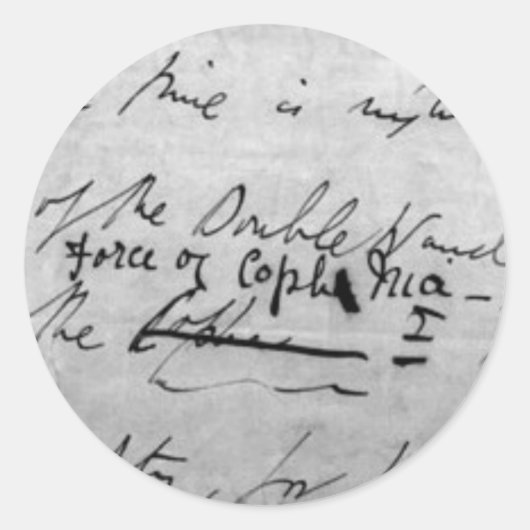 time is nigh
of the Double Wand
Force of Coph Nia -
the
for